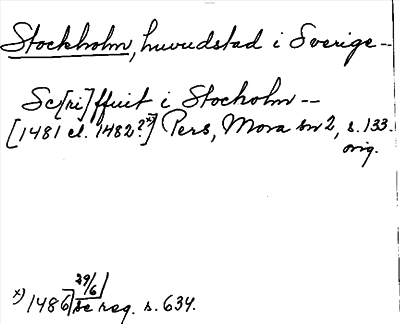 Stockholm, huvudstad i Sverige--
Sc[ri]ffuit i Stocholm--
[1481 el. 1482?x)] Pers, Mora sn 2, s. 133.
orig.
29/6
x) 1486 se reg. s. 634.